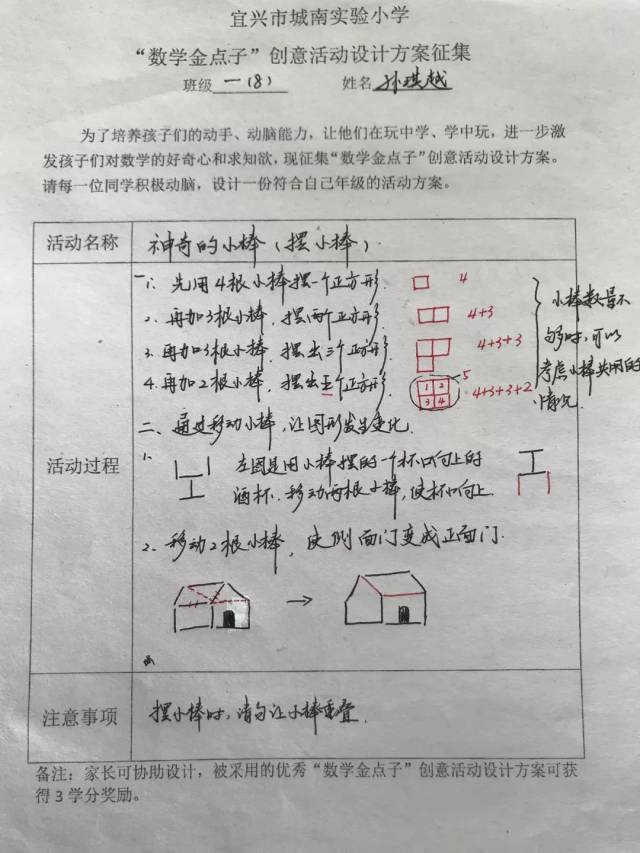 宜兴市城南实验小学
“数学金点子”创意活动设计方案征集
班级 一(8) 姓名 孙琪越
为了培养孩子们的动手、动脑能力，让他们在玩中学、学中玩，进一步激
发孩子们对数学的好奇心和求知欲，现征集“数学金点子”创意活动设计方案。
请每一位同学积极动脑，设计一份符合自己年级的活动方案。
活动名称 神奇的小棒（摆小棒）.
活动过程
一1. 先用4根小棒摆一个正方形. 4
2. 再加3根小棒，摆两个正方形. 4+3
3. 再加3根小棒，摆出三个正方形. 4+3+3
4. 再加2根小棒，摆出五个正方形. 1 2 3 4 5 4+3+3+2
小棒数量不
够时，可以
考虑小棒共用的
情况.
二、通过移动小棒，让图形发生变化.
1. 左图是用小棒摆的一个杯口向上的
酒杯. 移动两根小棒，使杯口向上.
2. 移动2根小棒，使侧面门变成正面门.
注意事项 摆小棒时，请勿让小棒重叠.
备注：家长可协助设计，被采用的优秀“数学金点子”创意活动设计方案可获
得3学分奖励。